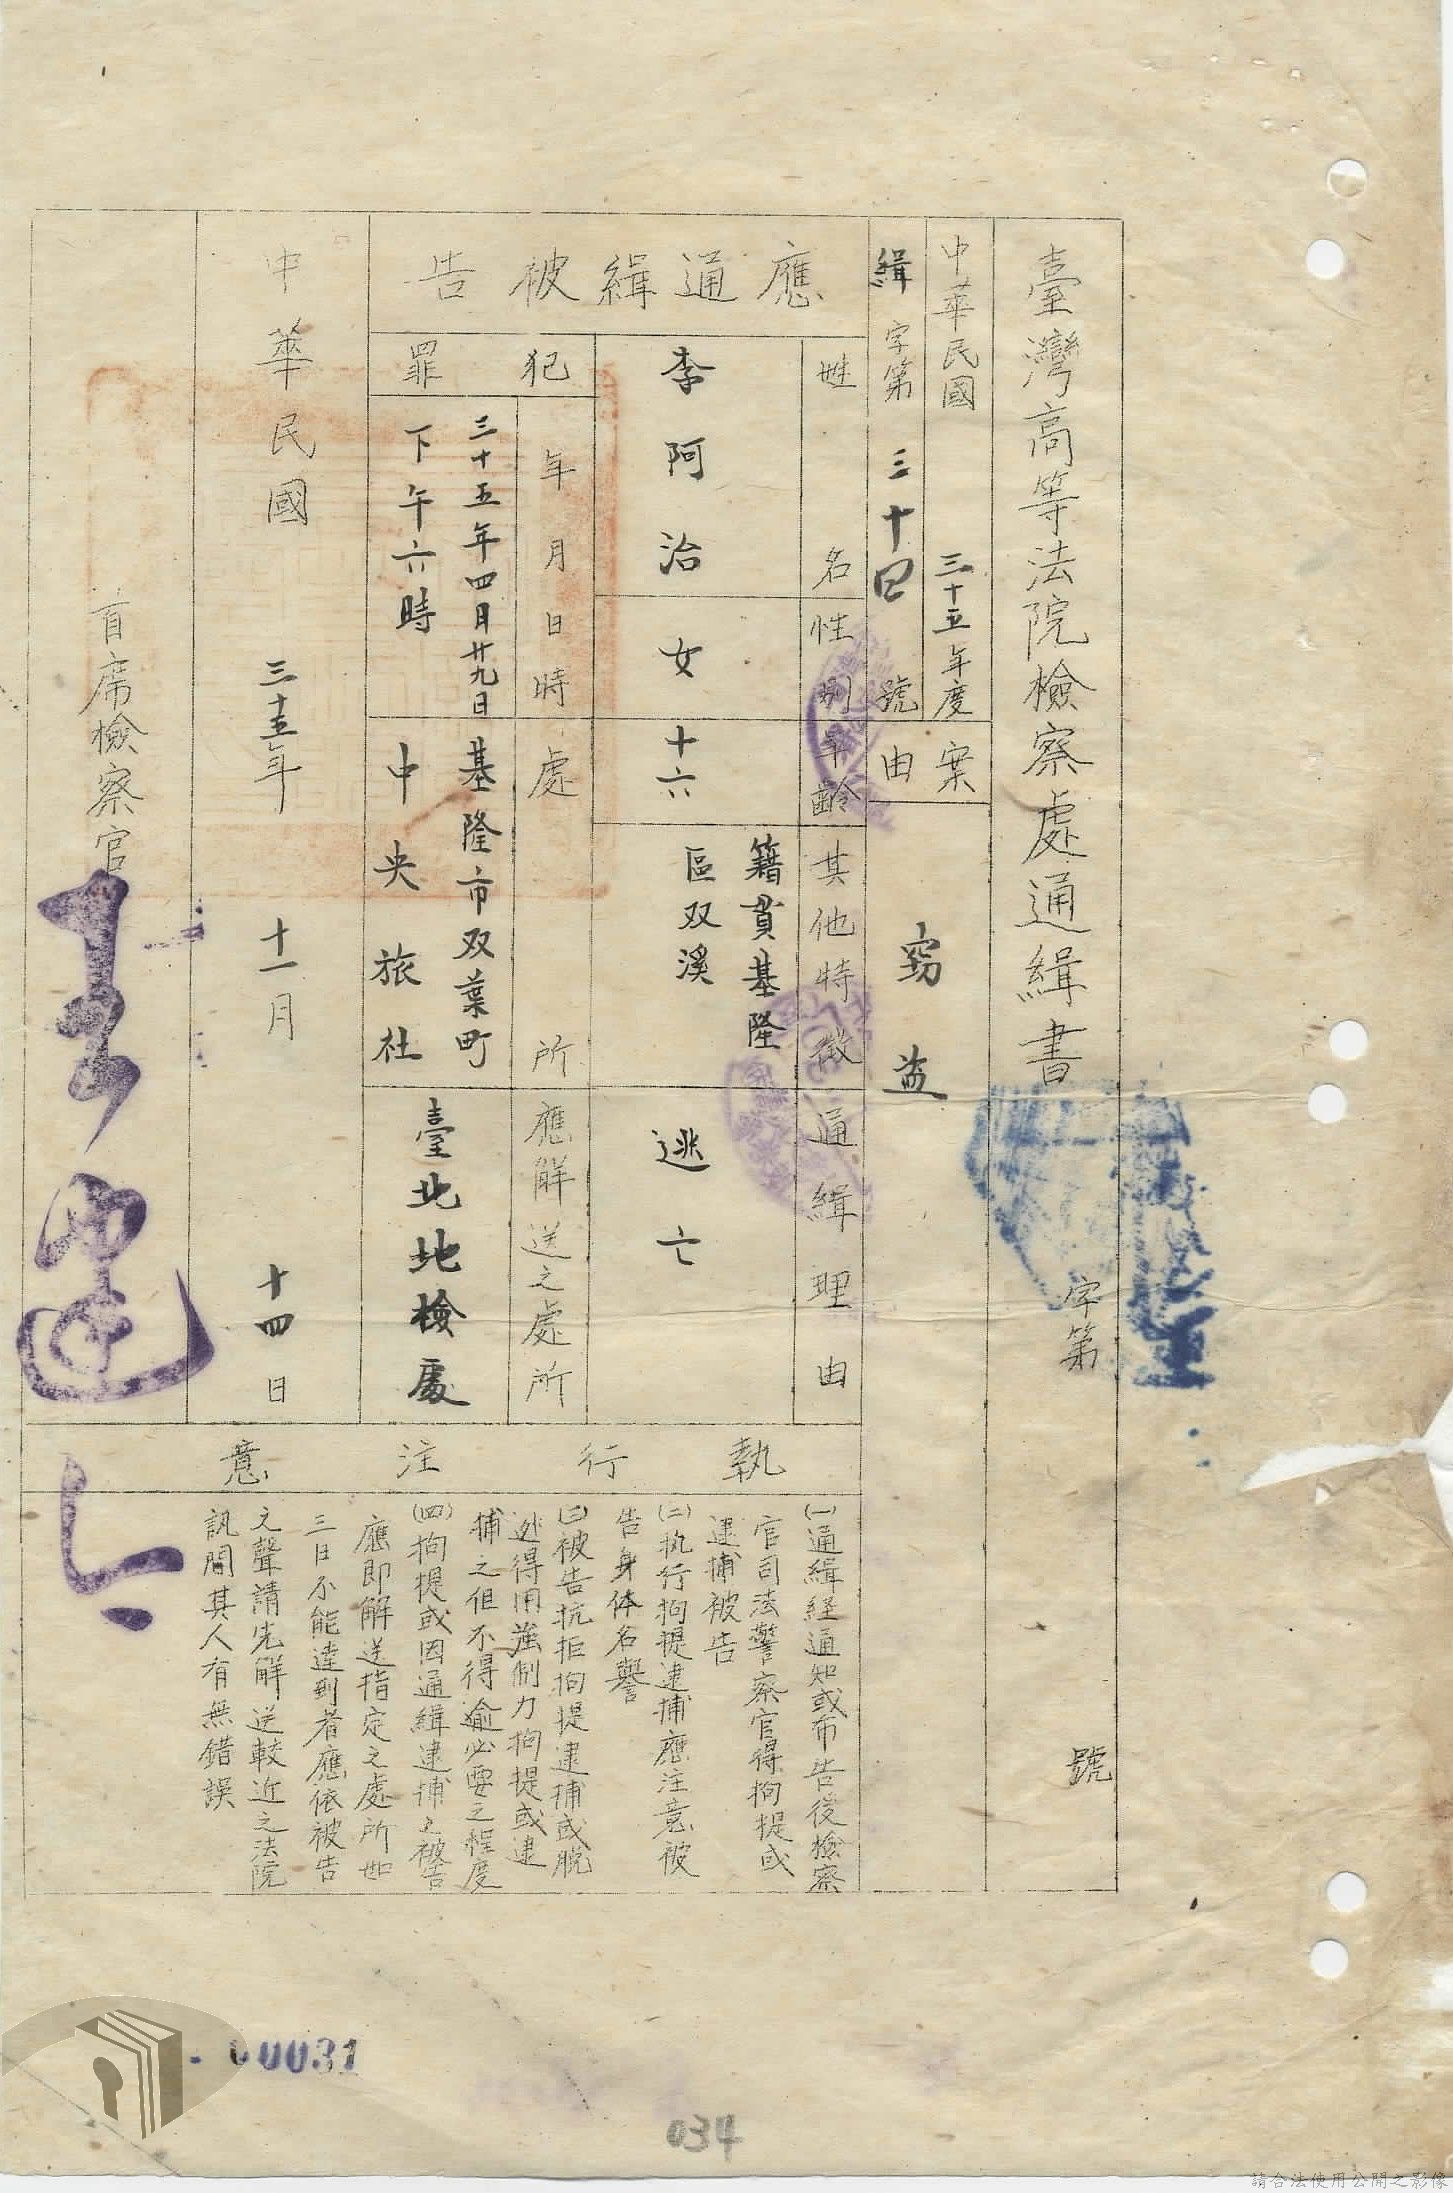 臺灣高等法院檢察處通緝書
字第
號
中華民國
三十五年度
緝字第三十四號
案由
竊盗
應通緝被告
姓名
性別
年齡
其他特徵
通緝理由
李阿治
女
十六
籍貫基隆
區双溪
逃亡
犯罪
年月日時
處所
應解送之處所
三十五年四月廿九日
下午六時
基隆市双葉町
中央旅社
臺北地檢處
中華民國
三十五年
十一月
十四日
首席檢察官
執行注意
(一)通緝経通知或布告後檢察
官司法警察官得拘提或
逮捕被告
(二)执行拘提逮捕應注意被
告身体名譽
(三)被告抗拒拘提逮捕或脱
逃得用强制力拘提或逮
捕之但不得逾必要之程度
(四)拘提或因通緝逮捕之被告
應即解送指定之處所如
三日不能達到者應依被告
之聲請先解送較近之法院
訊問其人有無錯誤
00031
034
請合法使用公開之影像